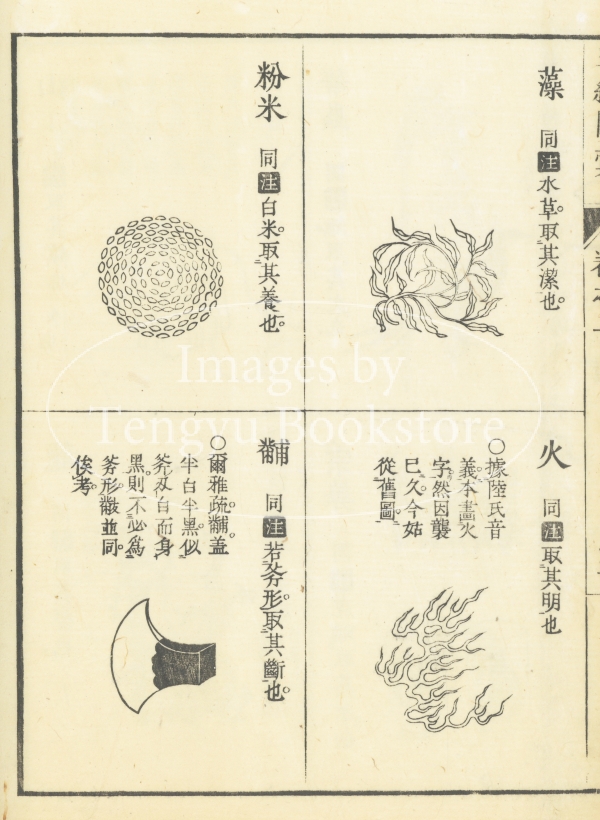 藻
同注水草取其潔也
火
同注取其明也
○據陸氏音
義本畫火
字然因襲
已久今姑
從舊圖
粉米
同注白米取其養也
黼
同注若斧形取其斷也
○爾雅疏黼蓋
半白半黒似
斧刃白而身
黒則不必為
斧形黻並同
俟考
Images by
Tengyu Bookstore